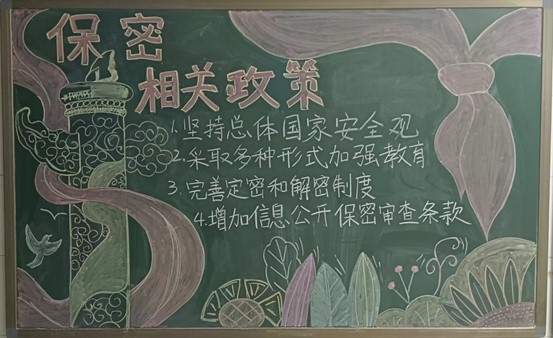 保密
相关政策
1.坚持总体国家安全观
2.采取多种形式加强教育
3.完善定密和解密制度
4.增加信息公开保密审查条款